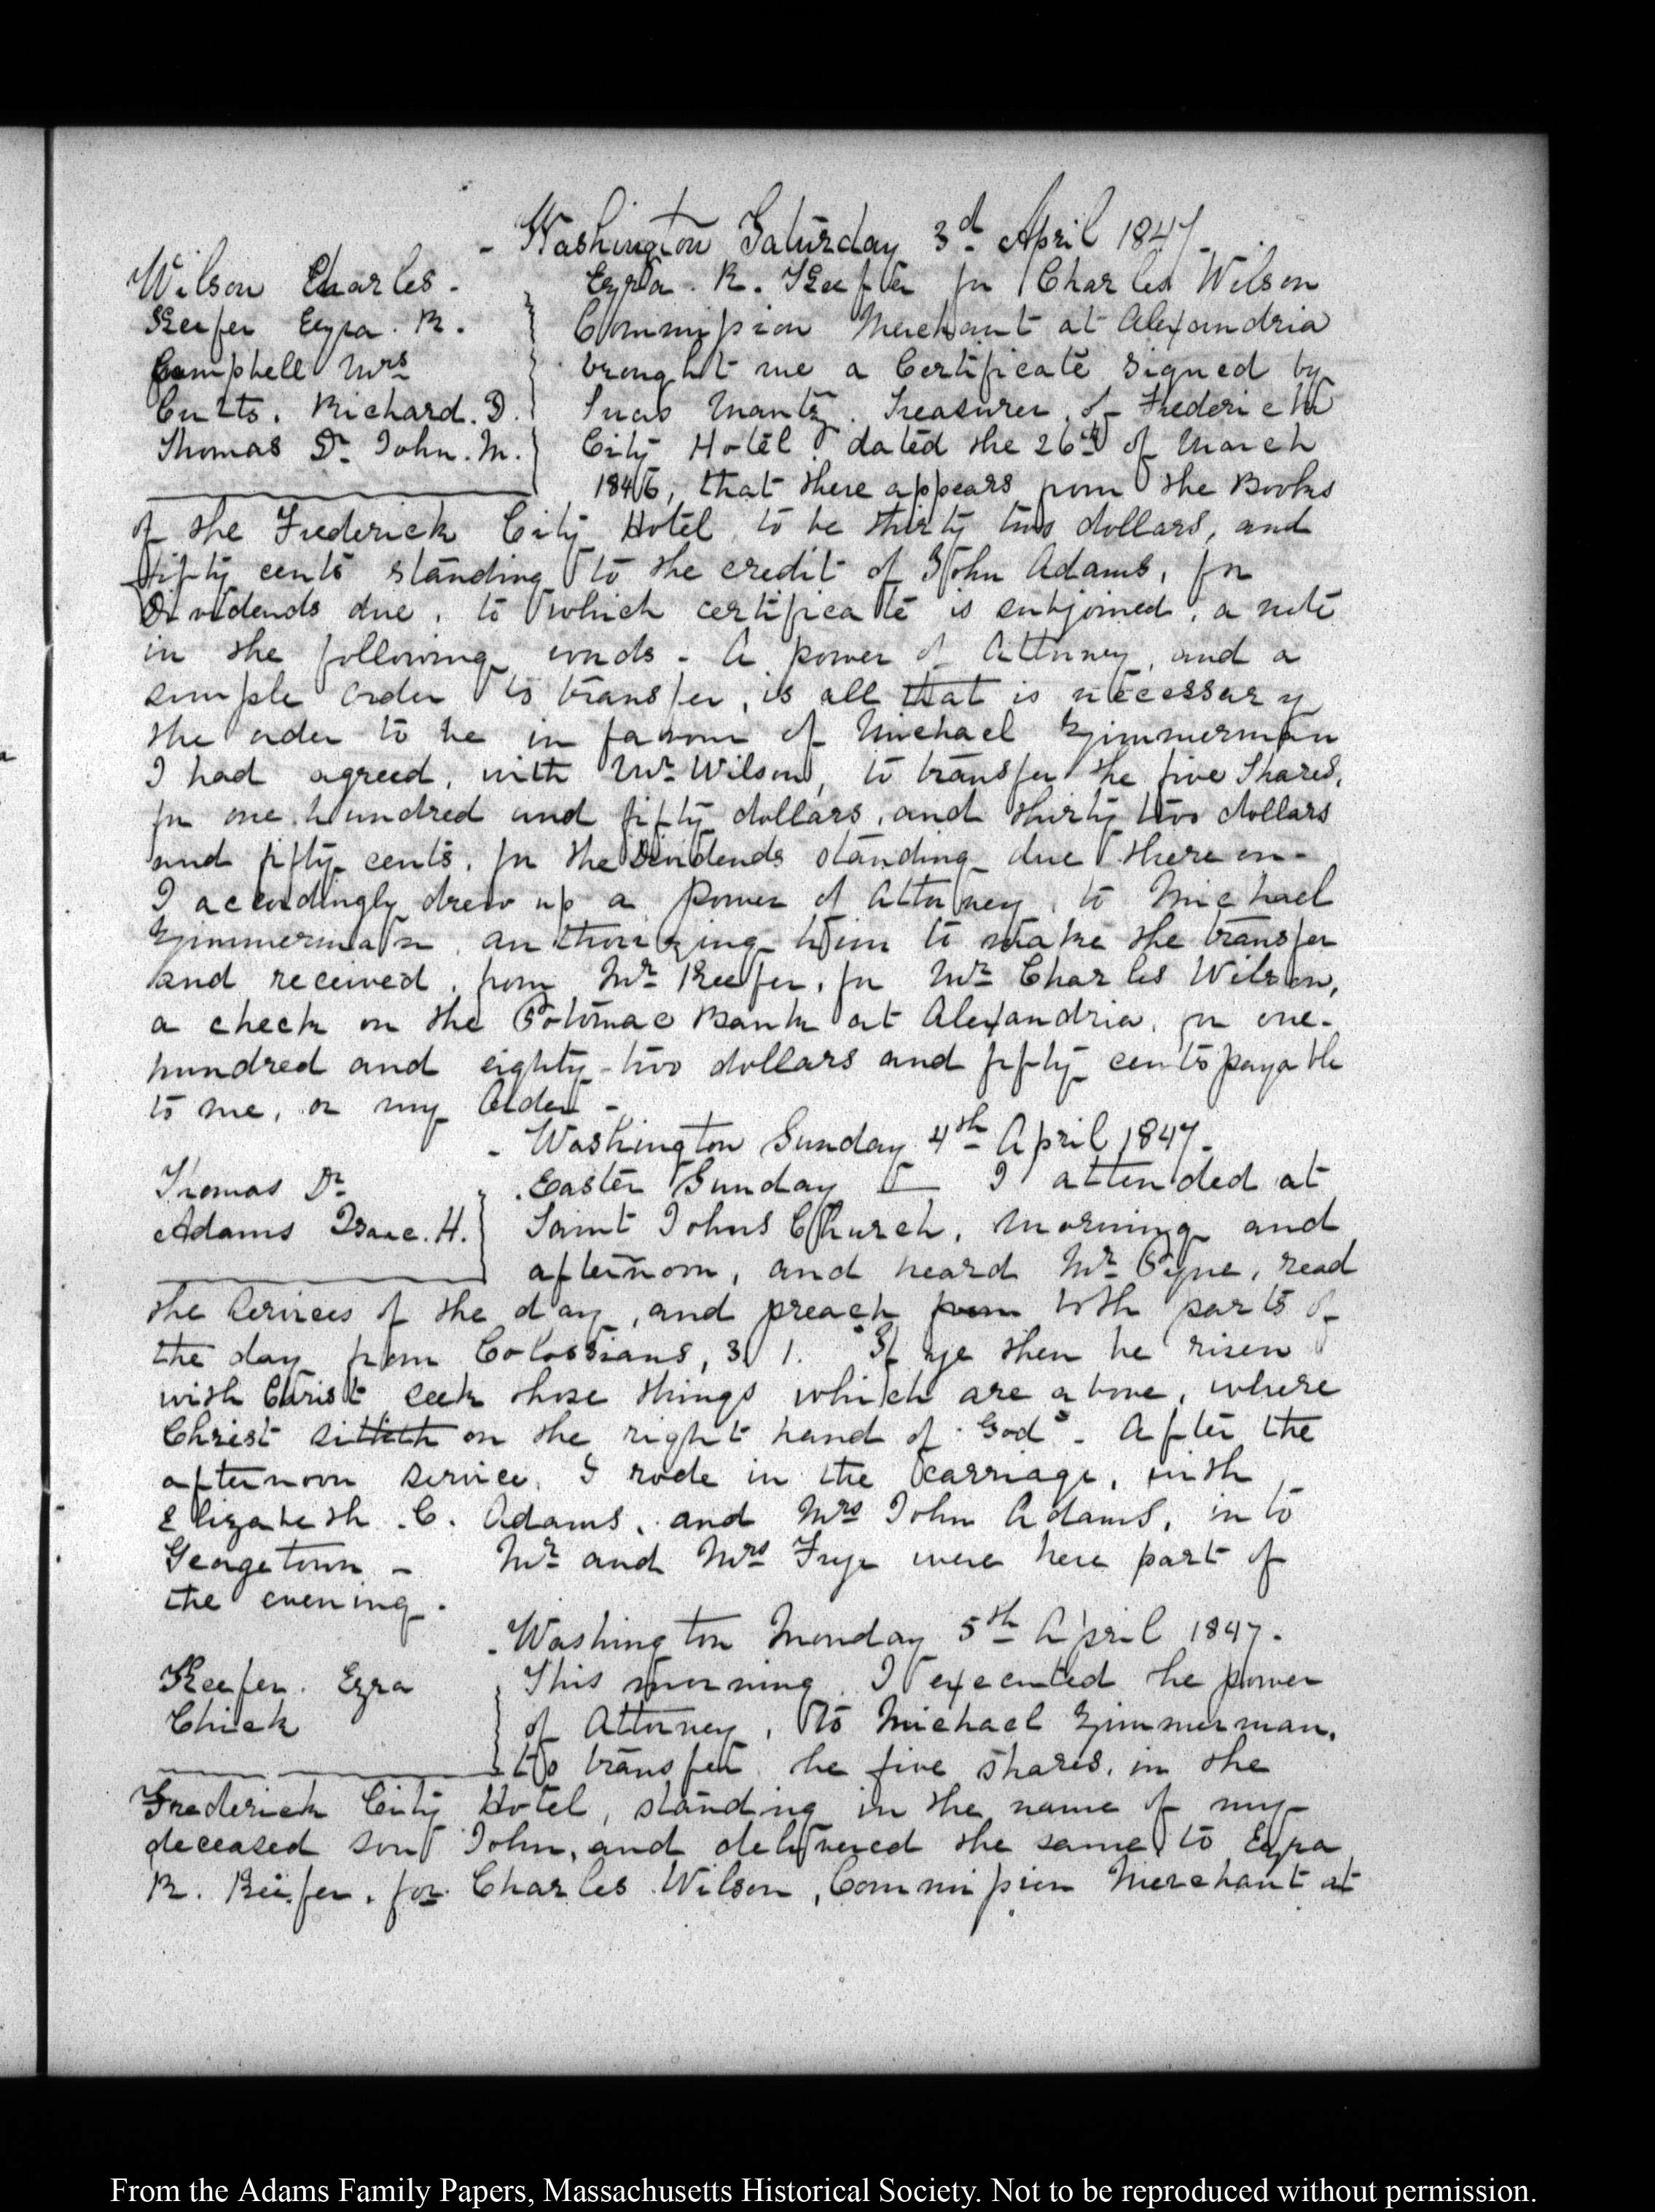 - Washington Saturday 3d April 1847 -
Wilson Charles -
Keefer Ezra. R.
Campbell Mrs
Cutts. Richard. D.
Thomas Dr. John. M.
Ezra. R. Keefer for Charles Wilson
Commission Merchant at Alexandria
brought me a Certificate signed by
Mantz. Treasurer, of Frederick
City Hotel dated the 26th of March
1846, that there appears from the Books
of the Frederick City Hotel, to be thirty two dollars, and
fifty cents standing to the credit of John Adams, for
Dividends due, to which certificate is subjoined, a note
in the following words - A power of Attorney, and a
simple order to transfer, is all that is necessary
the order to be in favour of Michael Zimmerman
I had agreed, with Mr. Wilson, to transfer the five Shares,
for one hundred and fifty dollars, and thirty two dollars
and fifty cents, for the Dividends standing due thereon -
I accordingly drew up a Power of Attorney, to Michael
Zimmerman, authorizing him to make the transfer
and received, from Mr. Keefer, for Mr. Charles Wilson,
a check on the Potomac Bank at Alexandria, for one-
hundred and eighty-two dollars and fifty cents payable
to me, or my Order -
- Washington Sunday 4th April 1847 -
Thomas Dr
Adams Isaac. H.
Easter Sunday — I attended at
Saint Johns Church, morning and
afternoon, and heard Mr. Pyne, read
the services of the day, and preach from both parts of
the day from Colossians, 3. 1. "If ye then be risen
with Christ seek those things which are above, where
Christ sitteth on the right hand of God" - After the
afternoon service, I rode in the carriage, with
Elizabeth. C. Adams, and Mrs John Adams, into
Georgetown - Mr. and Mrs Frye were here part of
the evening.
- Washington Monday 5th April 1847.
Keefer. Ezra
Chick
This morning I executed the power
of Attorney, to Michael Zimmerman,
to transfer the five shares, in the
Frederick City Hotel, standing in the name of my
deceased son John, and delivered the same to Ezra
R. Keefer, for Charles Wilson, Commission Merchant at
From the Adams Family Papers, Massachusetts Historical Society. Not to be reproduced without permission.